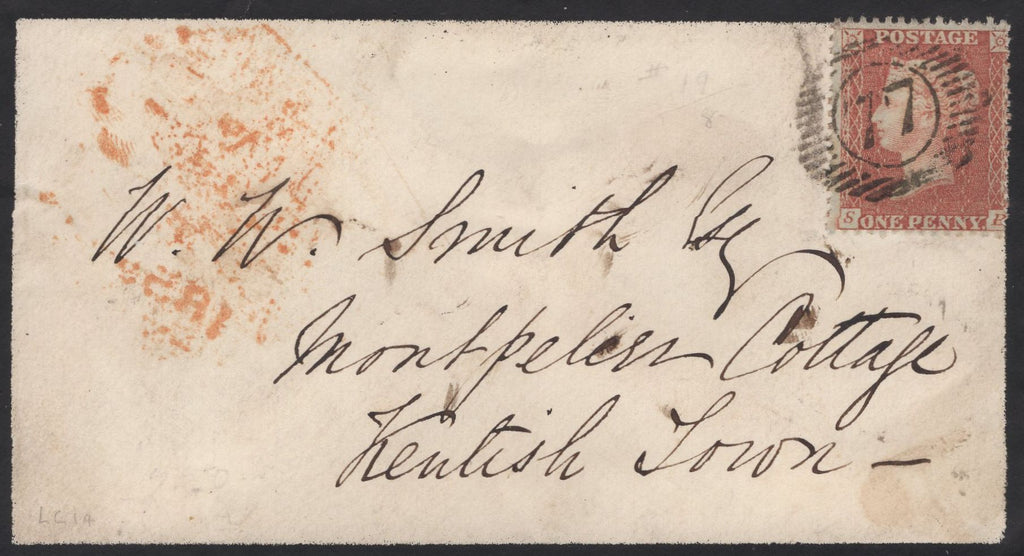 POSTAGE
77
S ONE PENNY.
W. W. Smith Esq
Montpelier Cottage
Kentish Town –
LC1A